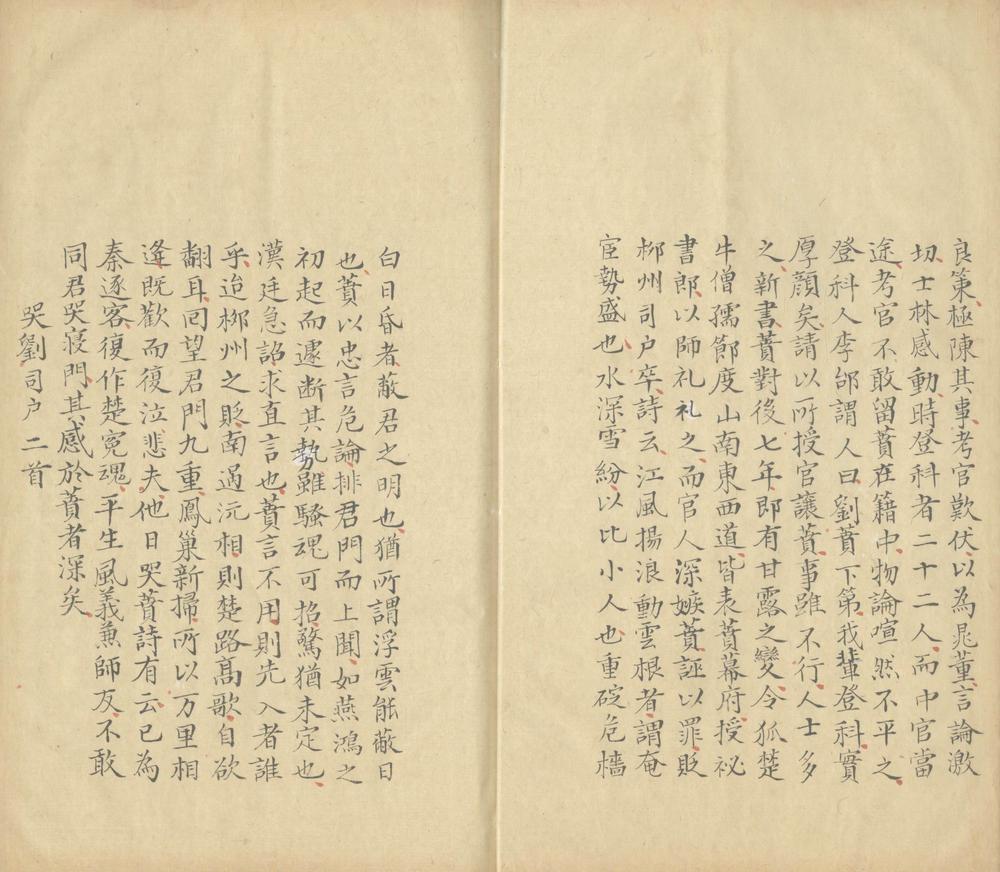 良策極陳其事考官歎伏以為晁董言論激
切士林感動時登科者二十二人而中官當
途考官不敢留蕡在籍中物論喧然不平之
登科人李郃謂人曰劉蕡下第我輩登科實
厚顏矣請以所授官讓蕡事雖不行人士多
之新書蕡對後七年即有甘露之變令狐楚
牛僧孺節度山南東西道皆表蕡幕府授祕
書郎以師礼礼之而官人深嫉蕡誣以罪貶
栁州司户卒詩云江風揚浪動雲根者謂奄
宦勢盛也水深雪紛以比小人也重碇危檣
白日昏者蔽君之明也猶所謂浮雲能蔽日
也蕡以忠言危論排君門而上聞如燕鴻之
初起而遽断其勢雖騷魂可招驚猶未定也
漢廷急詔求直言也蕡言不用則先入者誰
乎迨栁州之貶南過沅相則楚路高歌自欲
翻耳回望君門九重鳳巢新掃所以万里相
逢既歡而復泣悲夫他日哭蕡詩有云已為
秦逐客復作楚寃魂平生風義兼師友不敢
同君哭寢門其感於蕡者深矣
哭劉司户二首